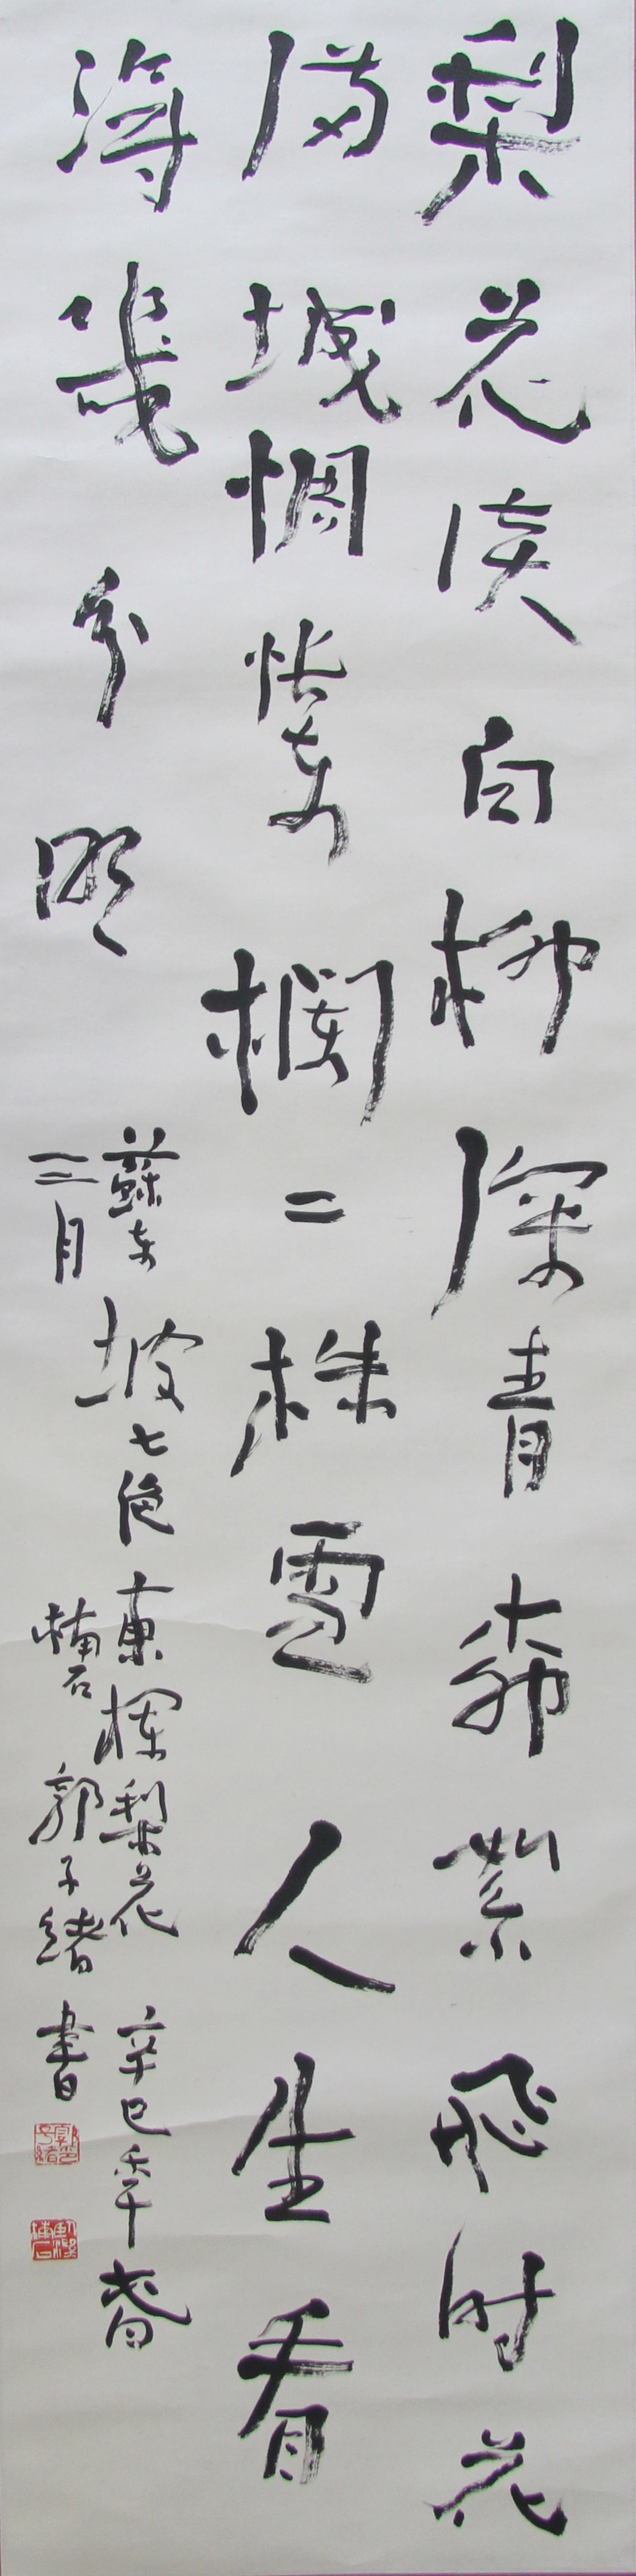 梨花淡白柳深青柳絮飛时花
满城惆悵東欄二株雪人生看
得幾分明
蘇東坡七绝東欄梨花 辛巳年春
三月 楠石 郭子緒書